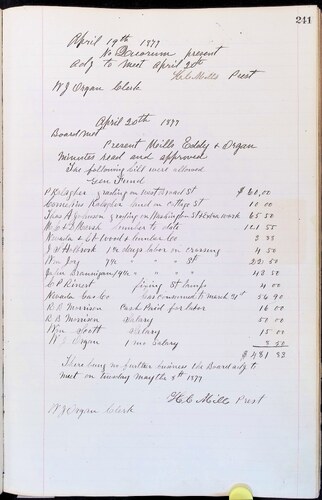 241
April 19th 1877
No Quorum present
adj to meet April 20th
H C Mills Prest
W J Organ Clerk
April 20th 1877
Board Met
Present Mills Eddy & Organ
Minutes read and approved
The following bills were allowed
Gen Fund
P Kelegher grading on West Broad St $ 60,00
Cornelius Kelegher land on Cottage St 10 00
Thos A Johnson grading on Washington St & other work 65 50
lumber to date 101 55
Nevada Wood & Lumber Co 2 33
J W Hook 1 1/2 days labor on crossing 4 50
Wm Joy 7 1/2 " " " St 22 50
John Brannigan 14 1/4 " " " 42 50
C P Rinest fixing St lamps 4 00
Nevada Gas Co Gas consumed to March 31st 54 90
R D Morrison Cash Paid for labor 16 00
R D Morrison Salary 50 00
Wm Scott Salary 15 00
W J Organ 1 mo Salary 8 50
$ 481 82
There being no further business the Board adj to
meet on tuesday may the 8th 1877
H C Mills Prest
W J Organ Clerk